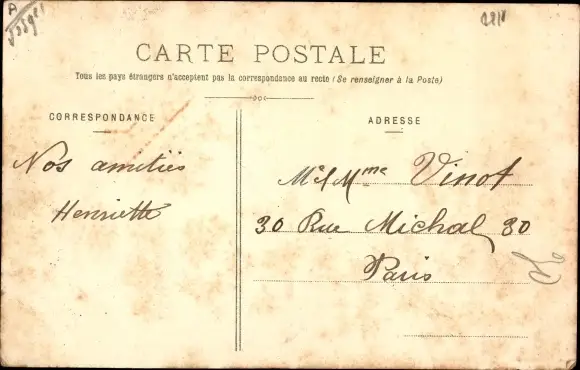 CARTE POSTALE
Tous les pays étrangers n'acceptent pas la correspondance au recto (Se renseigner à la Poste)
CORRESPONDANCE
Nos amitiés
Henriette
ADRESSE
Mr & Mme Vinot
30 Rue Michal 30
Paris